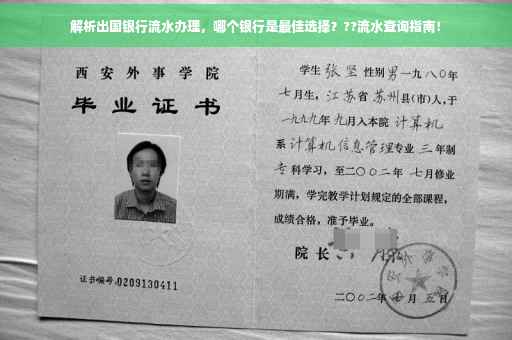 解析出国银行流水办理，哪个银行是最佳选择？??流水查询指南！
西安外事学院
毕业证书
证书编号:0209130411
学生 张坚 性别男一九八〇年
七月生，江苏省苏州县(市)人,于
一九九九年九月入本院 计算机
系 计算机信息管理专业 三 年制
专科学习，至二〇〇二年 七月修业
期满，学完教学计划规定的全部课程，
成绩合格，准予毕业。
院长
二〇〇二年 月 五日